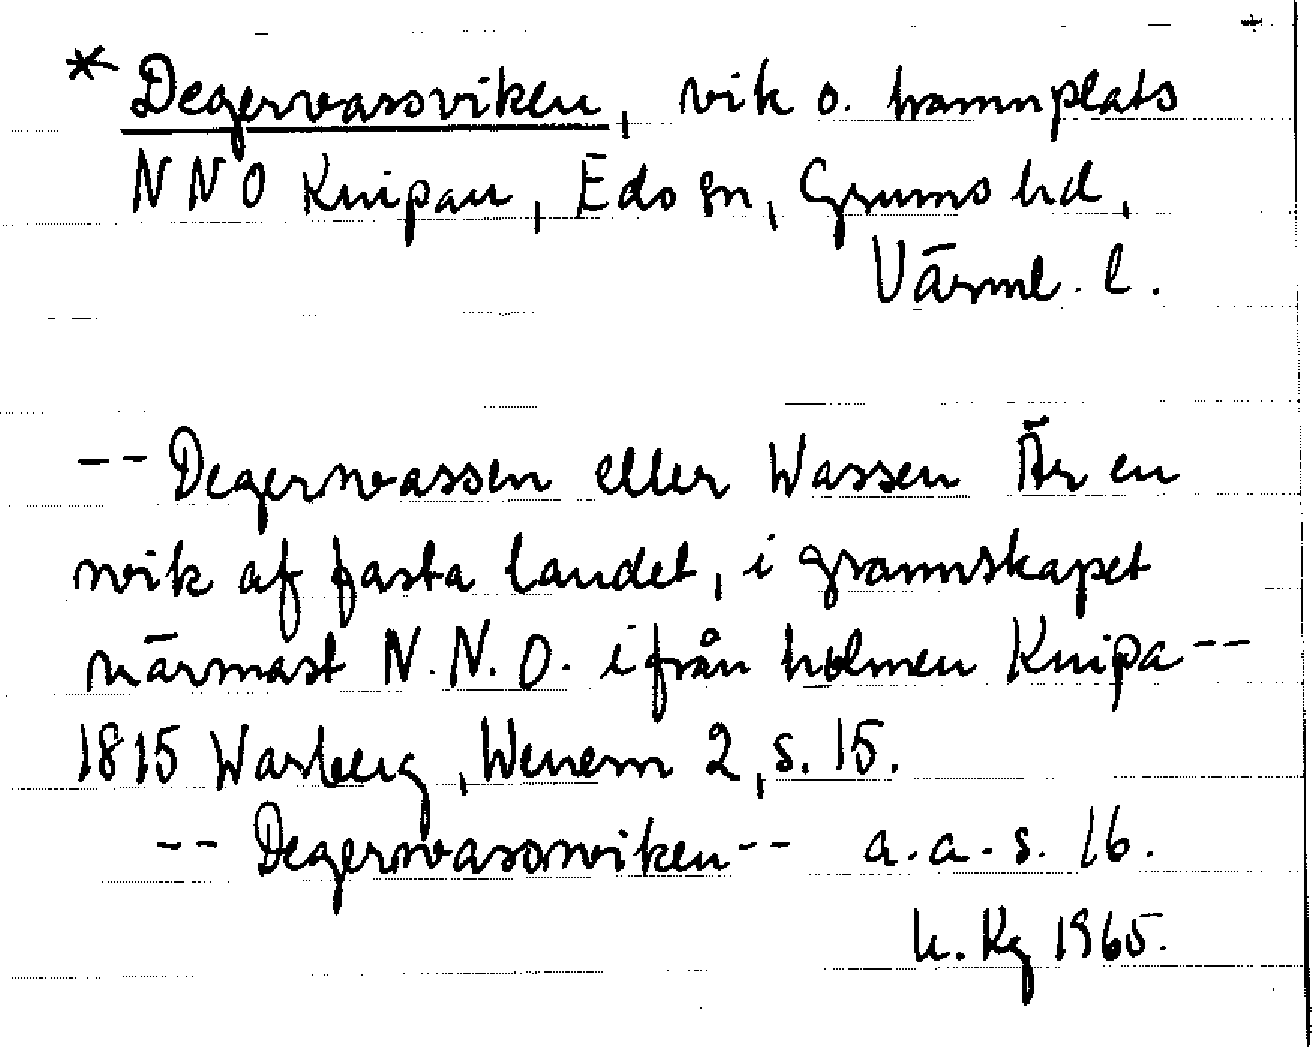 * Degervassviken, vik o. hamnplats
NNO Knipan, Eds sn, Grums hd,
Värml. l.
-- Degerwassen eller Wassen Är en
wik af fasta landet, i grannskapet
närmast N.N.O. ifrån holmen Knipa --
1815 Warberg, Wenern 2, s. 15.
-- Degerwasswiken -- a.a. s. 16.
k. Kg 1965.